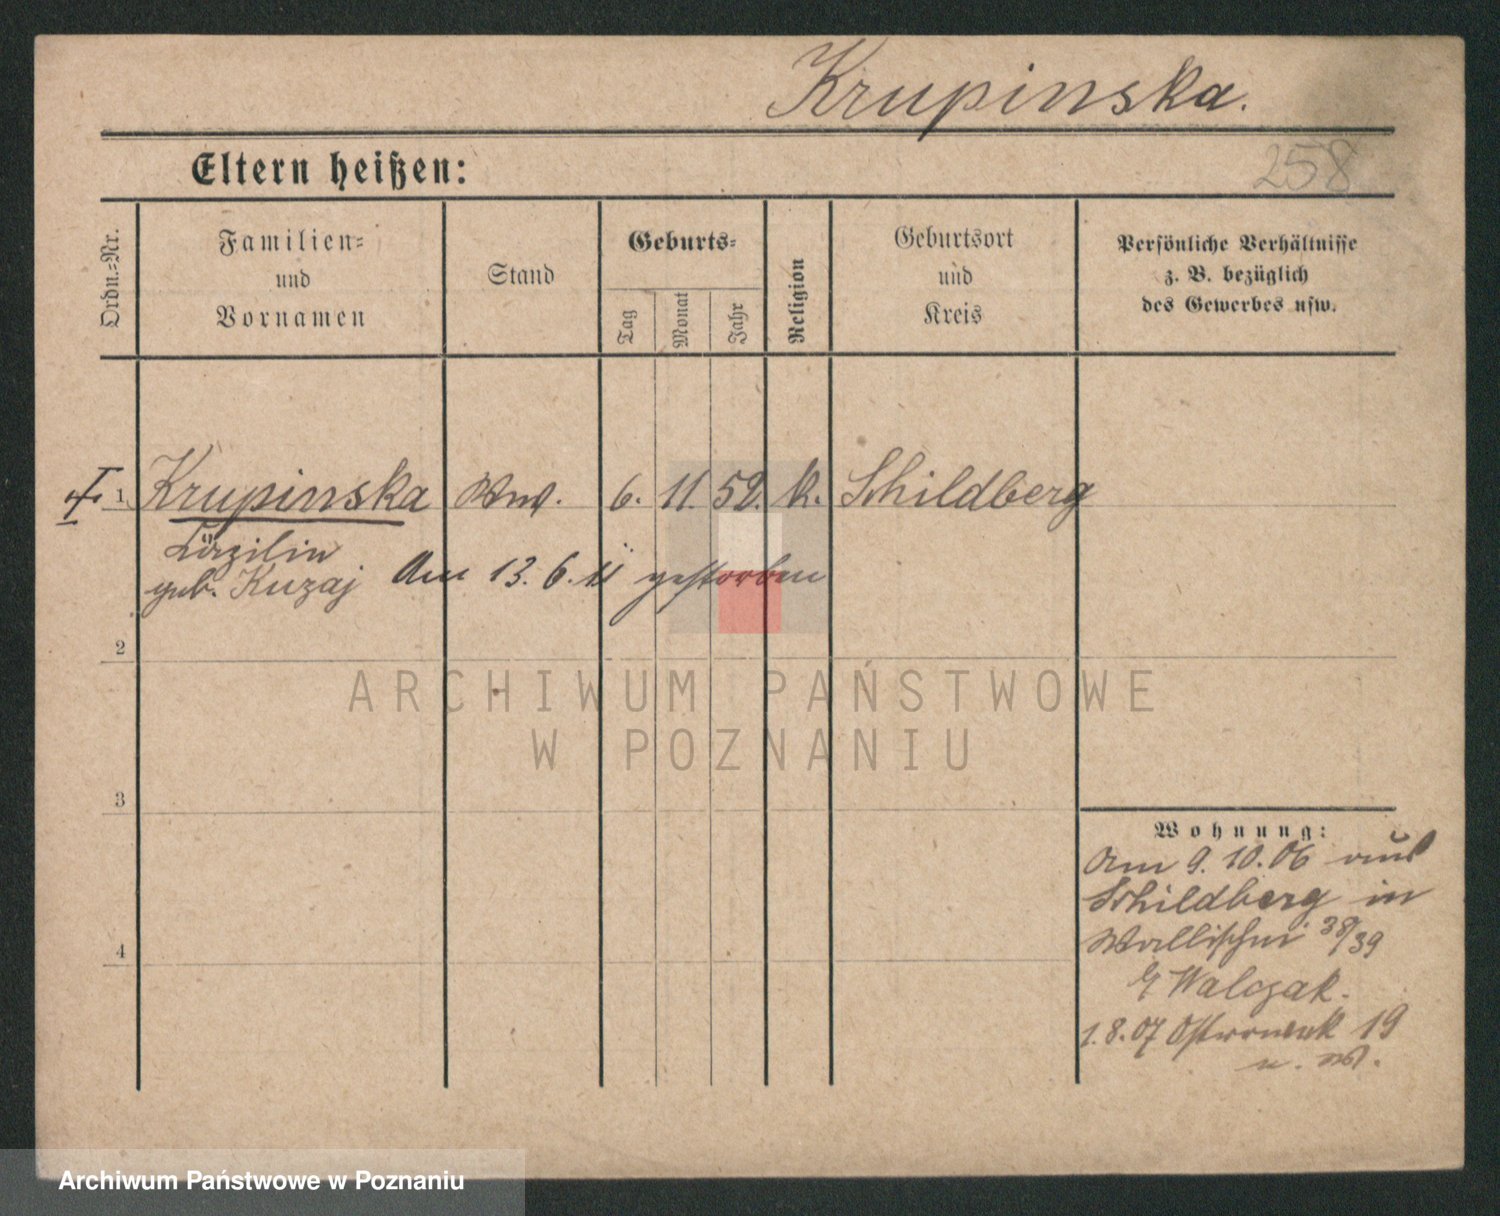 Krupinska.
258
Eltern heißen:
Ordn.=Nr.
Familien=
und
Vornamen
Stand
Geburts=
Tag
Monat
Jahr
Religion
Geburtsort
und
Kreis
Persönliche Verhältnisse
z. B. bezüglich
des Gewerbes usw.
1 Krupinska Wwe. 6. 11. 52. k. Schildberg
Cäzilie
geb. Kuzaj Am 13. 6. 11 gestorben
2
3
4
ARCHIWUM PAŃSTWOWE
W POZNANIU
Wohnung:
Am 9. 10. 06 aus
Schildberg in
Wallischei 38/39
Walczak.
1. 8. 07 Ostrowek 19
Archiwum Państwowe w Poznaniu